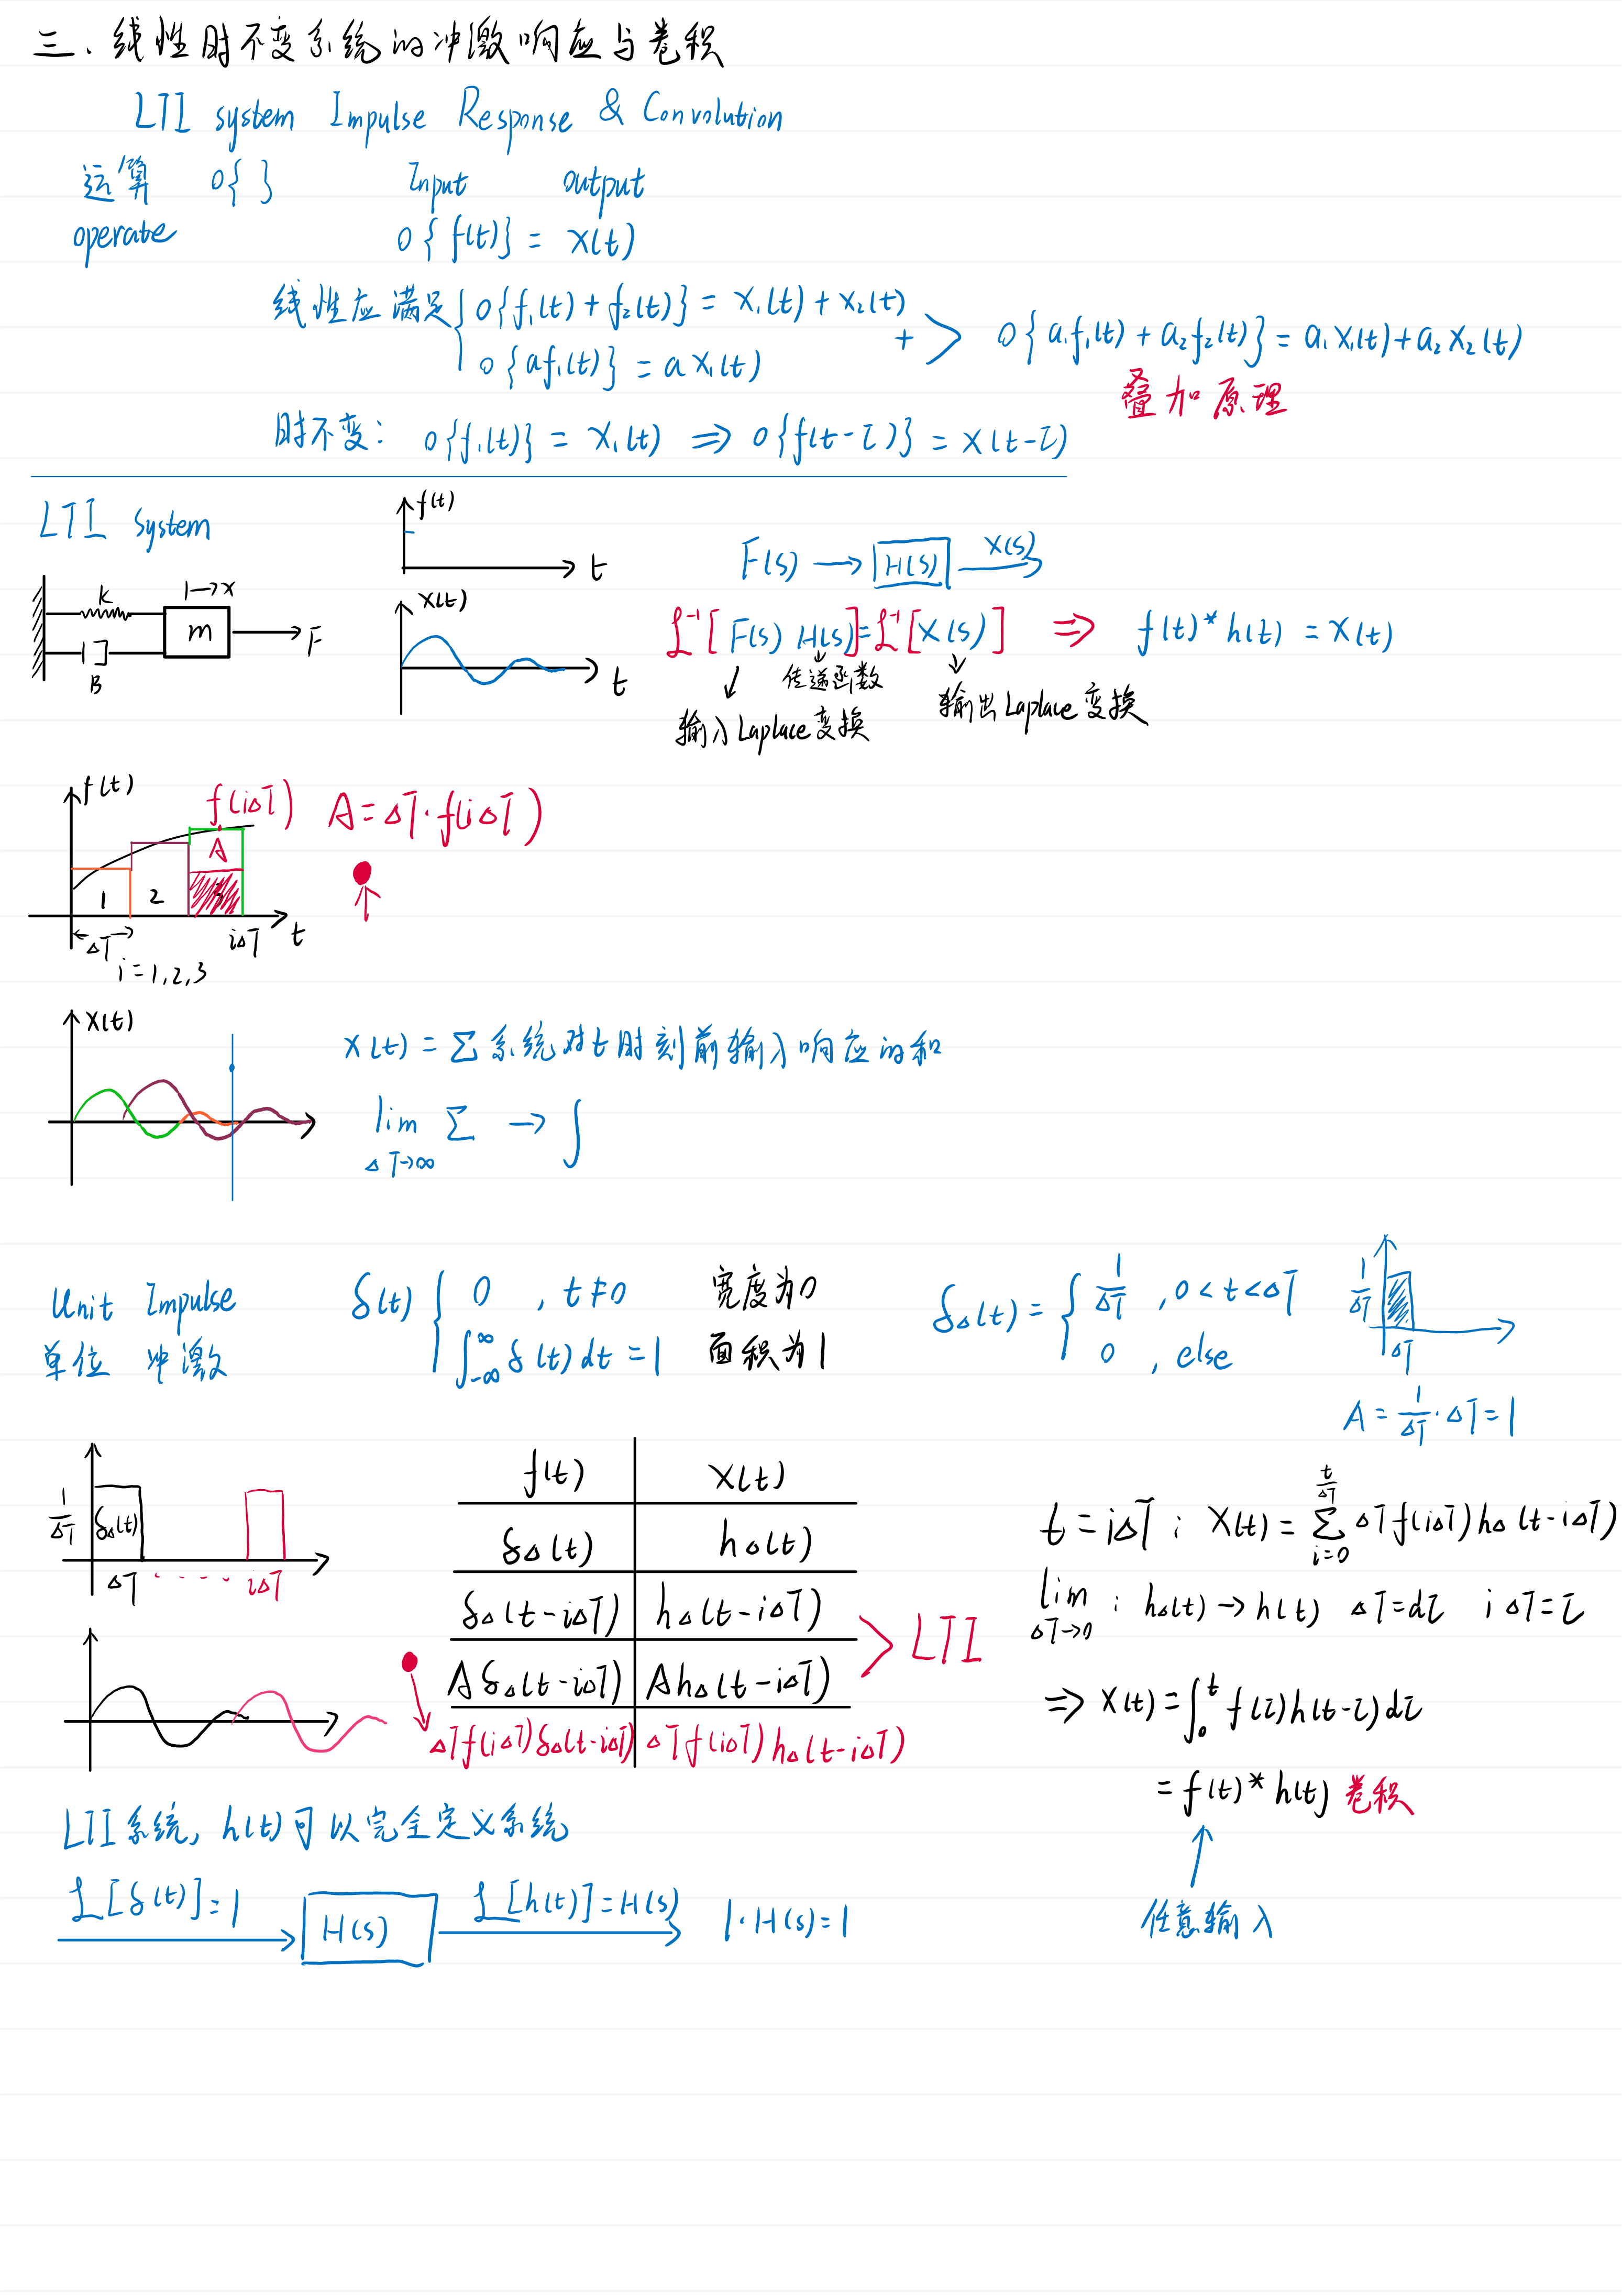 三、线性时不变系统的冲激响应与卷积
LTI system Impulse Response & Convolution
运算 O{ } Input output
operate O{f(t)} = x(t)
线性应满足 { O{f₁(t)+f₂(t)} = x₁(t)+x₂(t)
O{af₁(t)} = a x₁(t)
+ > O{a₁f₁(t)+a₂f₂(t)} = a₁x₁(t)+a₂x₂(t)
叠加原理
时不变: O{f₁(t)} = x₁(t) ⇒ O{f(t-τ)} = x(t-τ)
LTI system
K
|→x
m
F
B
f(t)
t
x(t)
t
F(s) → H(s) x(s) →
ℒ⁻¹[F(s) H(s)] = ℒ⁻¹[X(s)] ⇒ f(t)*h(t) = x(t)
↓ 传递函数
↓ 输入Laplace变换
↓ 输出Laplace变换
f(t)
f(i△T)
A
1 2 3
△T i△T t
i=1,2,3
A=△T·f(i△T)
↑
x(t)
x(t) = Σ系统对t时刻前输入响应的和
lim Σ → ∫
△T→∞
Unit Impulse
单位 冲激
δ(t) { 0 , t≠0 宽度为0
∫_{-∞}^{∞} δ(t)dt=1 面积为1
δ△(t) = { 1/△T , 0<t<△T
0 , else
1/△T
△T
A = 1/△T·△T=1
1/△T δ△(t)
△T ..... i△T
f(t) x(t)
δ△(t) h△(t)
δ△(t-i△T) h△(t-i△T)
Aδ△(t-i△T) Ah△(t-i△T)
> LTI
△Tf(i△T)δ△(t-i△T) △Tf(i△T)h△(t-i△T)
t=i△T: x(t) = Σ_{i=0}^{t/△T} △Tf(i△T)h△(t-i△T)
lim △T→0 : h△(t)→h(t) △T=dτ i△T=τ
⇒ x(t)=∫₀ᵗ f(τ)h(t-τ)dτ
= f(t)*h(t) 卷积
↑
任意输入
LTI系统, h(t)可以完全定义系统
ℒ[δ(t)]=1 → H(s) ℒ[h(t)]=H(s) → 1·H(s)=1